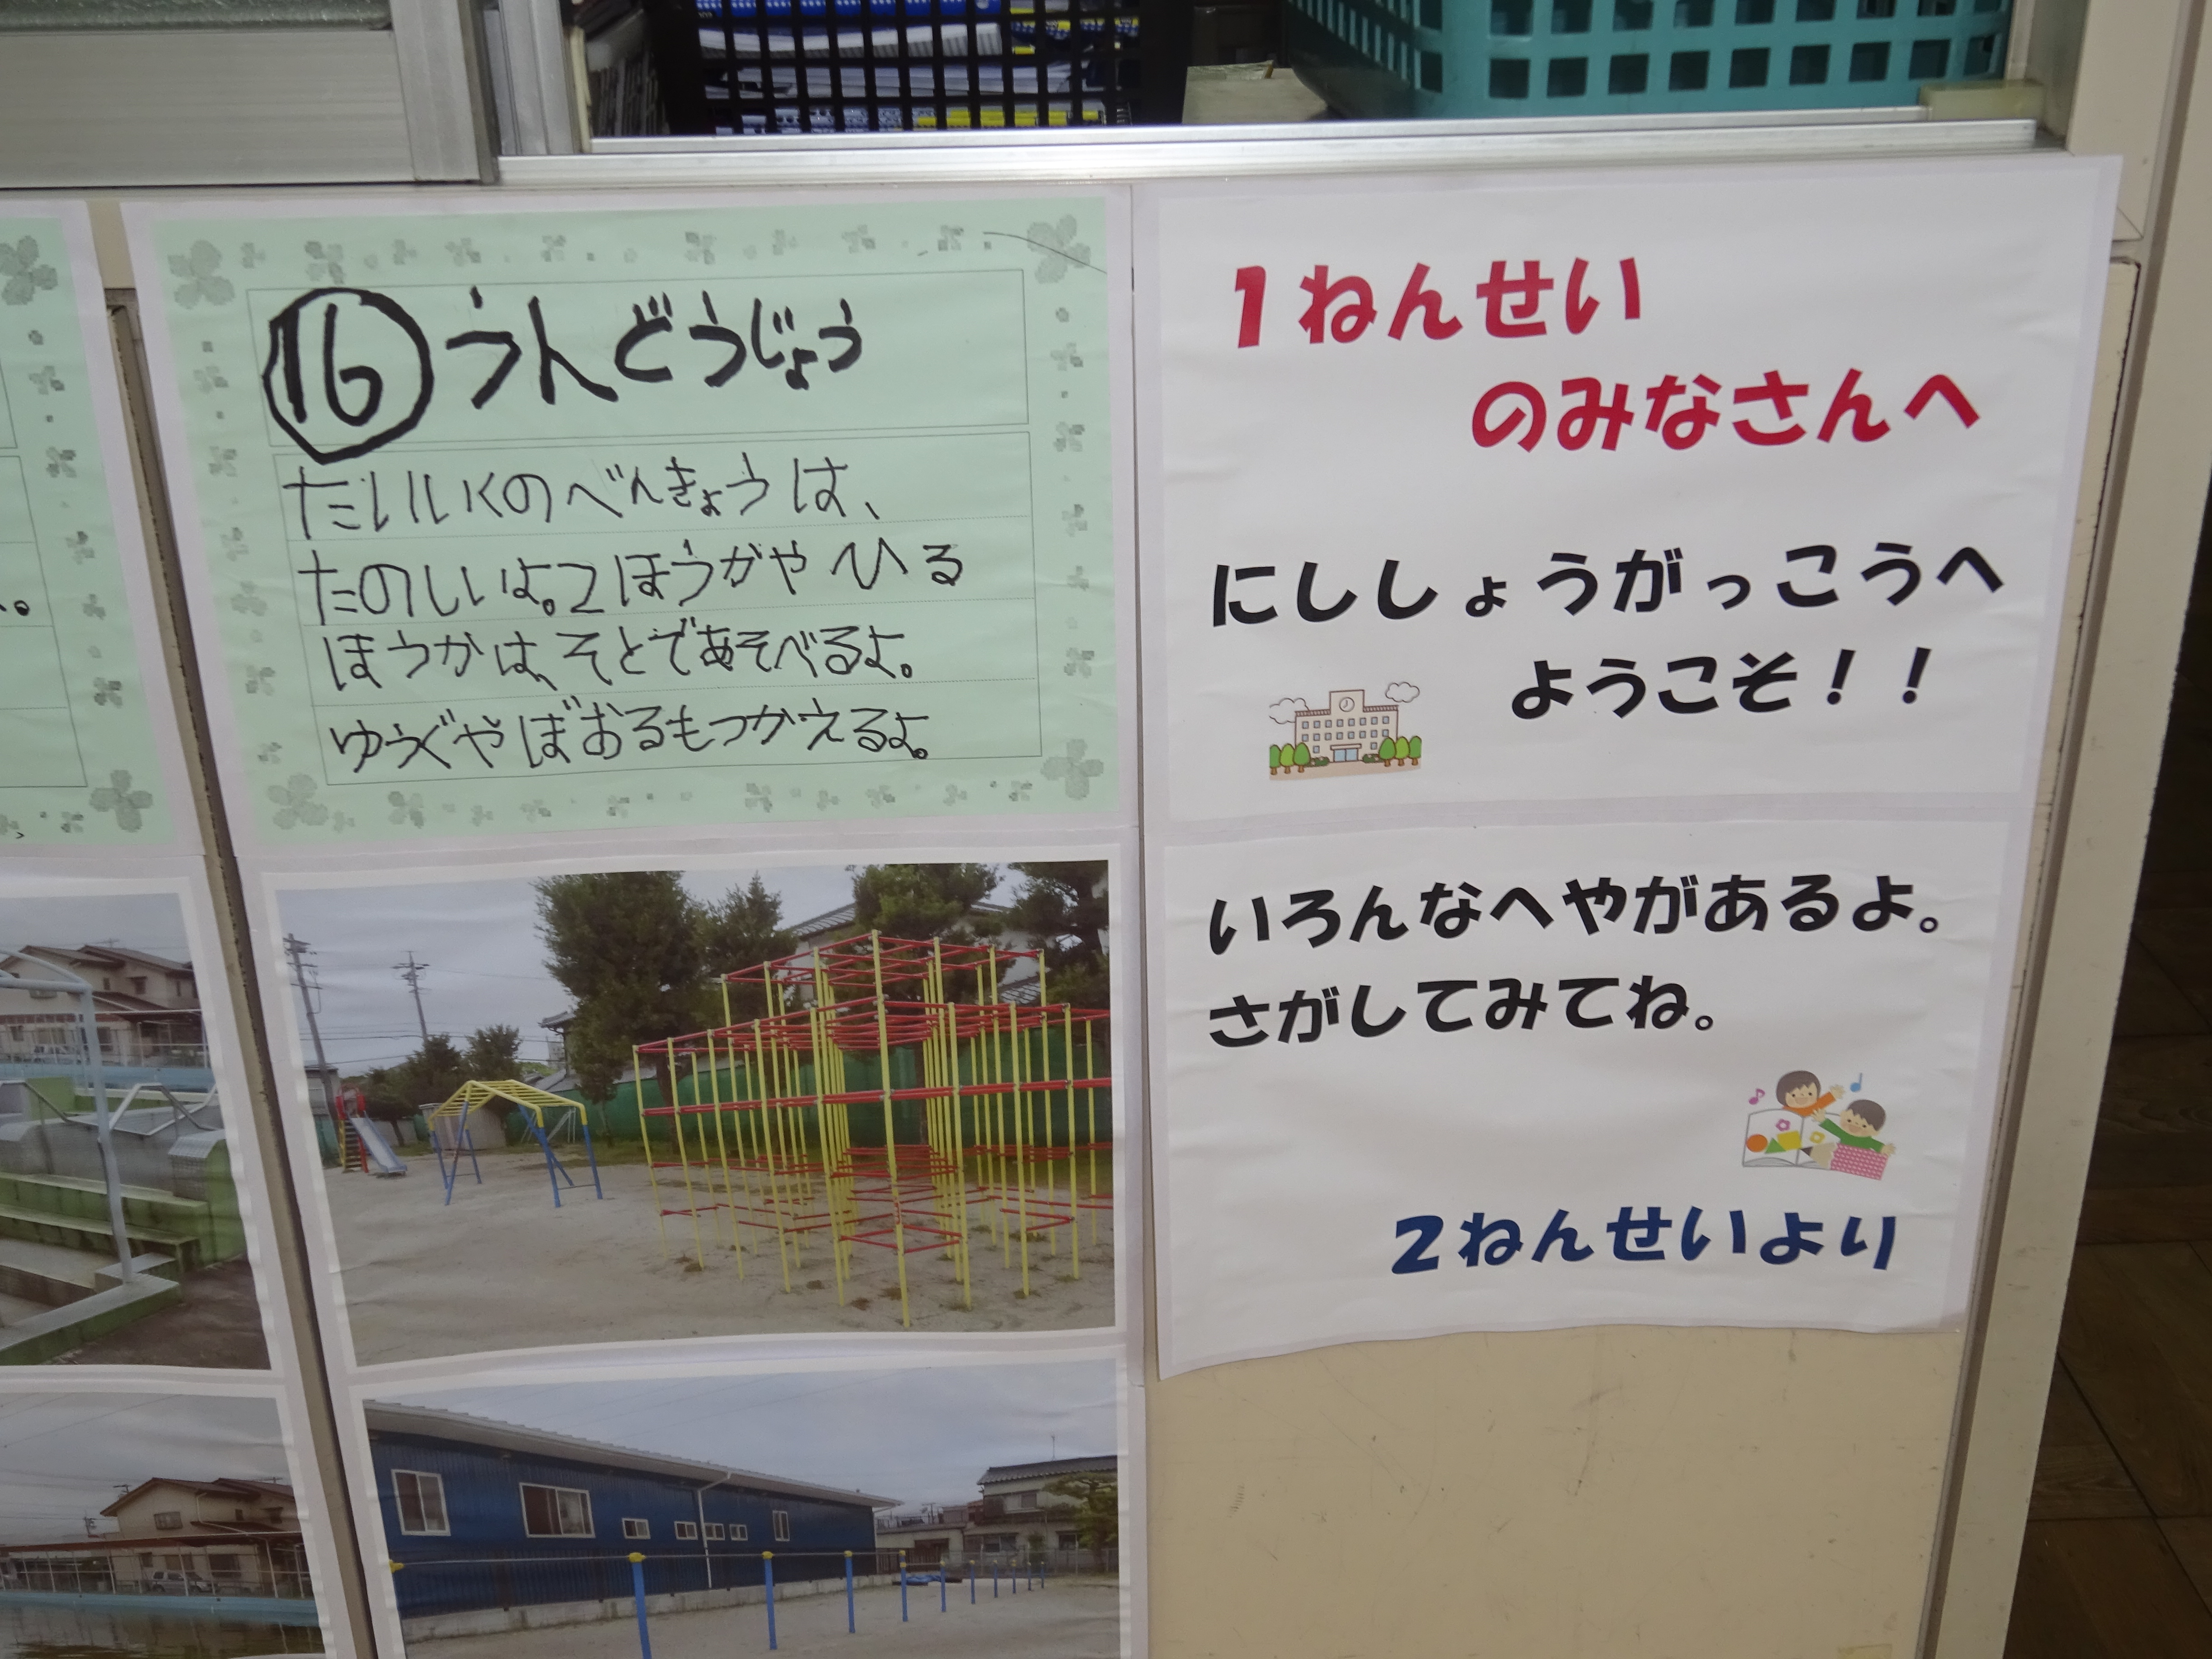 ⑯うんどうじょう
たいいくのべんきょうは、
たのしいよ。2ほうかやひる
ほうかは、そとであそべるよ。
ゆうぐやぼおるもつかえるよ。
1ねんせい
のみなさんへ
にししょうがっこうへ
ようこそ！！
いろんなへやがあるよ。
さがしてみてね。
2ねんせいより